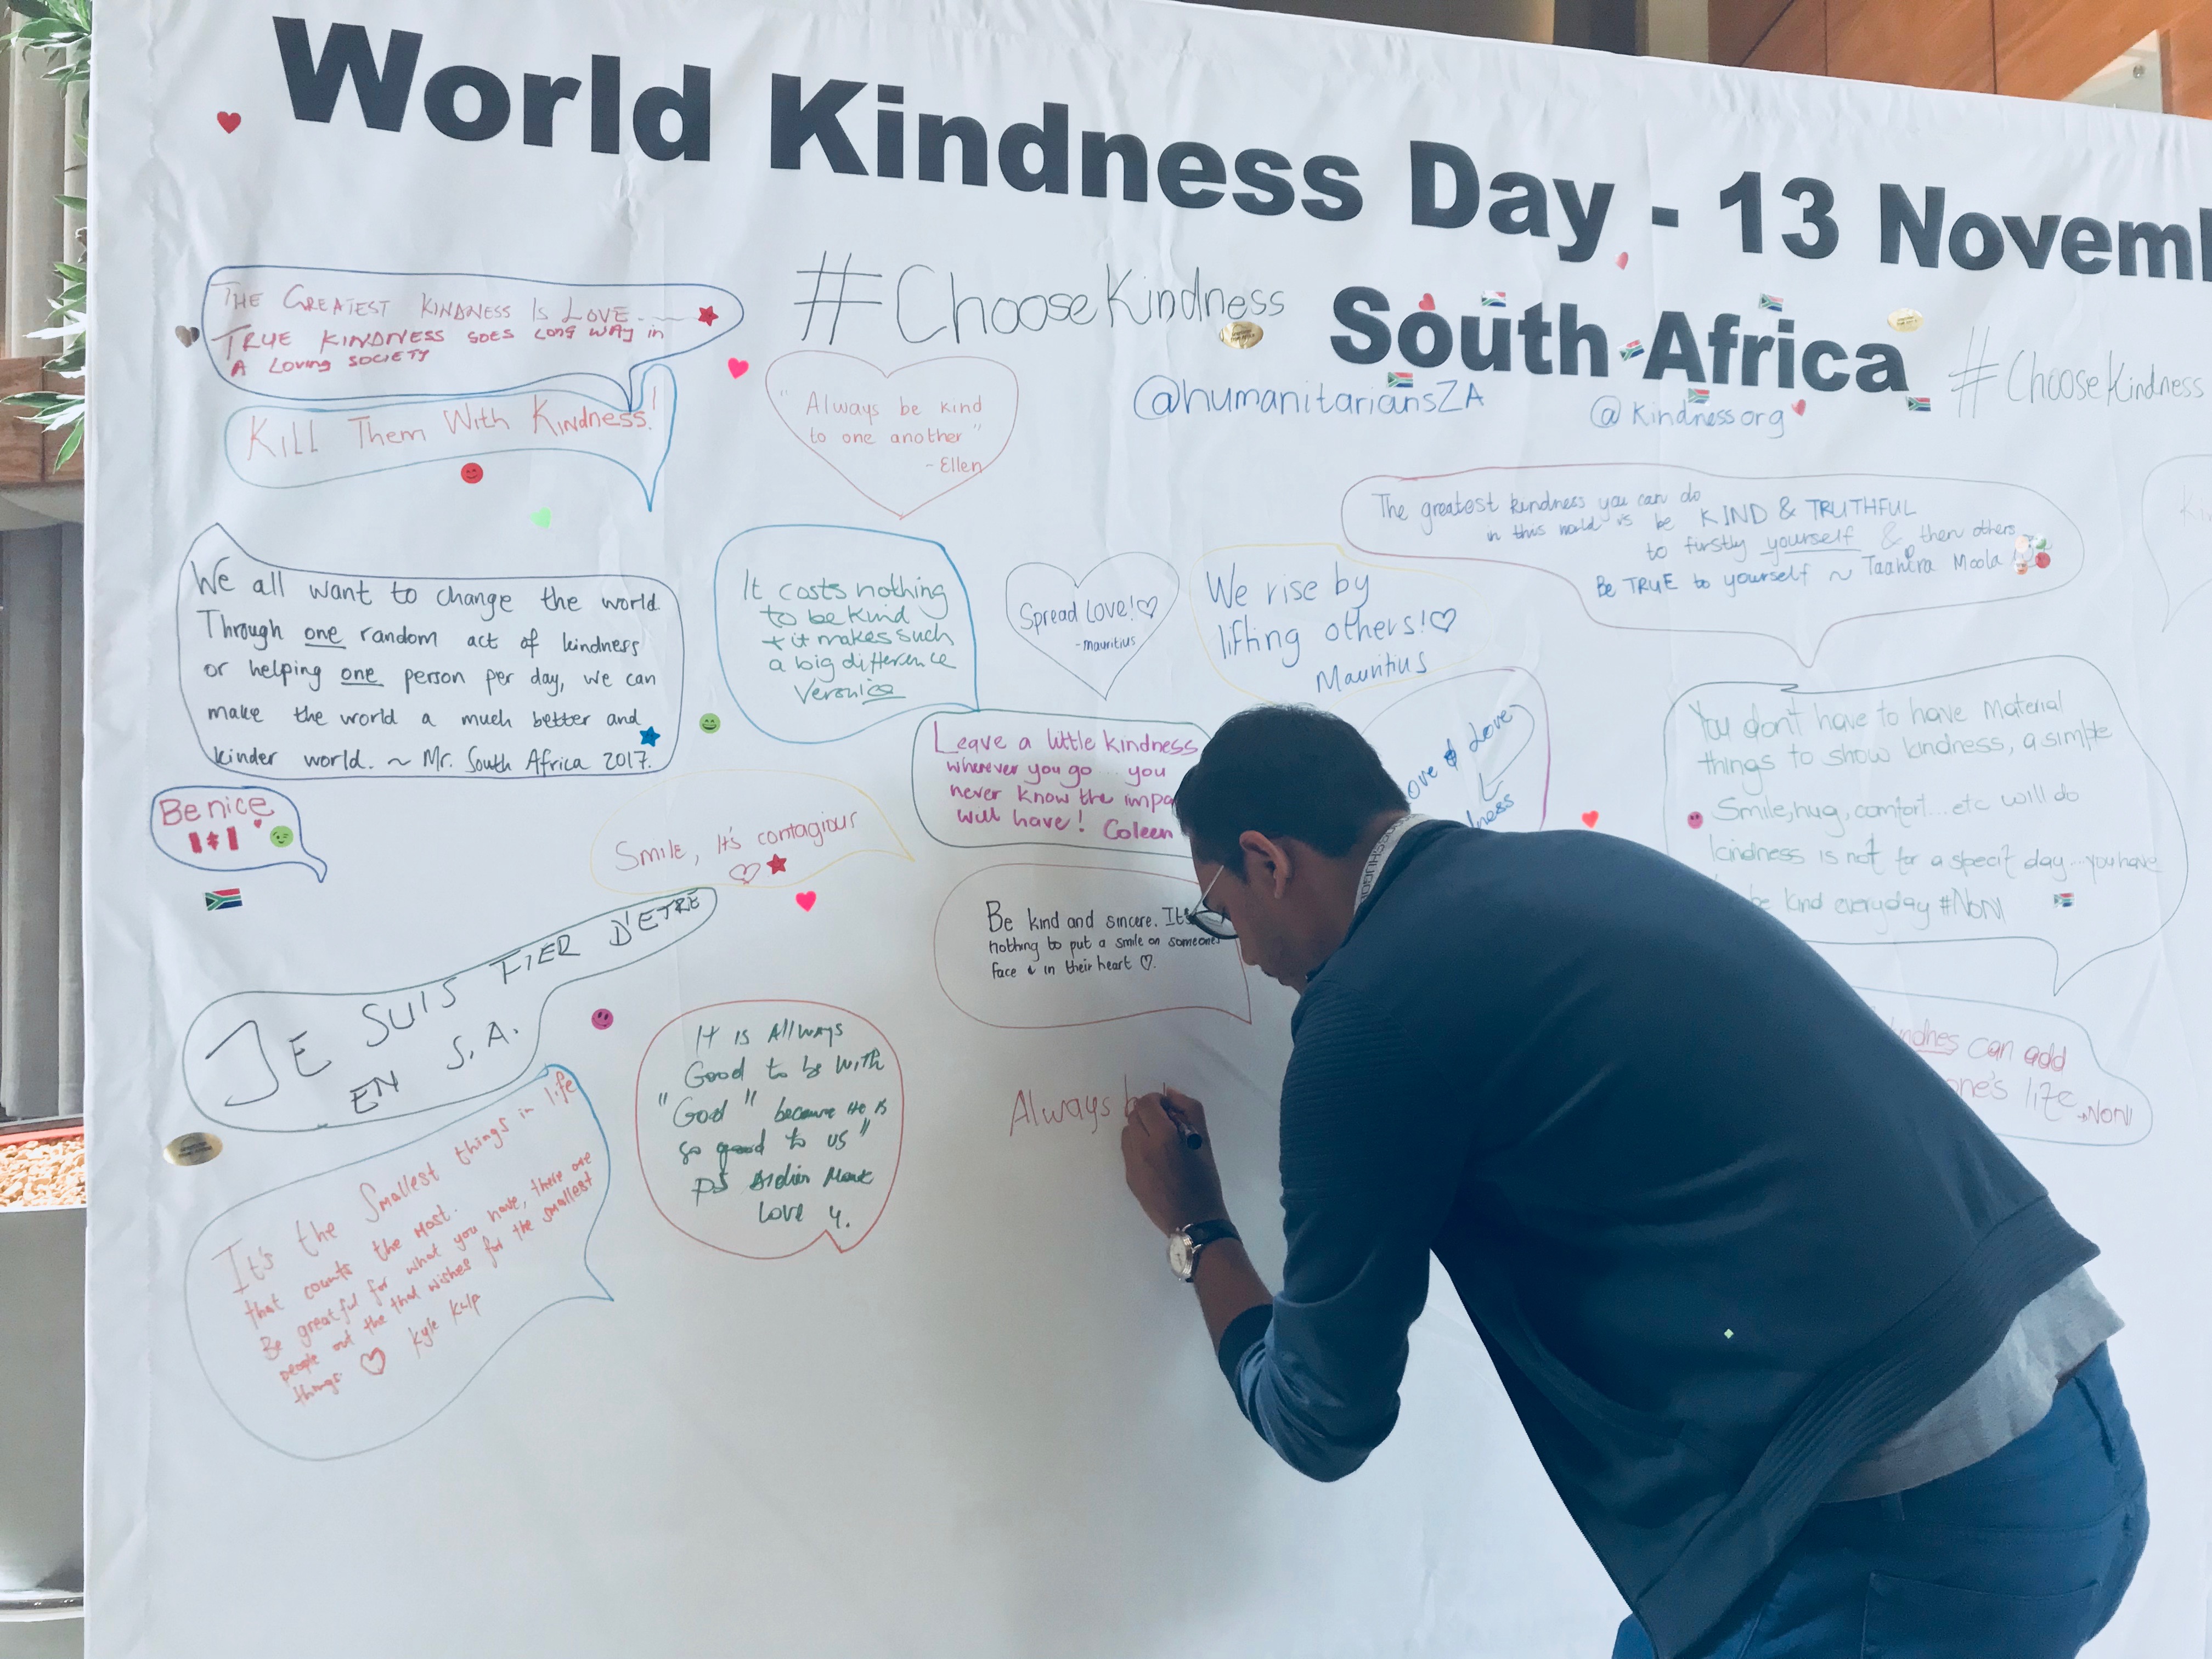 World Kindness Day - 13 Novemb
South Africa
#ChooseKindness
@humanitariansZA
@Kindnessorg
#ChooseKindness
THE GREATEST KINDNESS IS LOVE
TRUE KINDNESS GOES LONG WAY in
A Loving SOCIETY
KILL Them With Kindness!
"Always be kind
to one another"
- Ellen
The greatest kindness you can do
in this world is be KIND & TRUTHFUL
to firstly yourself & then others
Be TRUE to yourself ~ Taahira Moola
We all want to change the world.
Through one random act of kindness
or helping one person per day, we can
make the world a much better and
kinder world. ~ Mr. South Africa 2017.
It costs nothing
to be kind
+ it makes such
a big difference
Veronica
Spread Love!
- mauritius
We rise by
lifting others!
Mauritius
Leave a little kindness
wherever you go ... you
never know the impa
will have! Coleen
ove & Love
dness
You don't have to have Material
things to show kindness, a simple
Smile, hug, comfort...etc will do
kindness is not for a specif day...you have
be kind everyday #NONI
Be nice
Smile, It's contagious
Be kind and sincere. It's
nothing to put a smile on someones
face & in their heart
JE SUIS FIER D'ETRE
EN S.A.
It is Allways
Good to be with
"God" because He is
so good to us"
PS Mark
Love 4.
Always b
can add
one's life NONI
It's the Smallest things in life
that counts the most.
Be greatful for what you have, there are
people out the that wishes for the smallest
things. Kyle Kulp